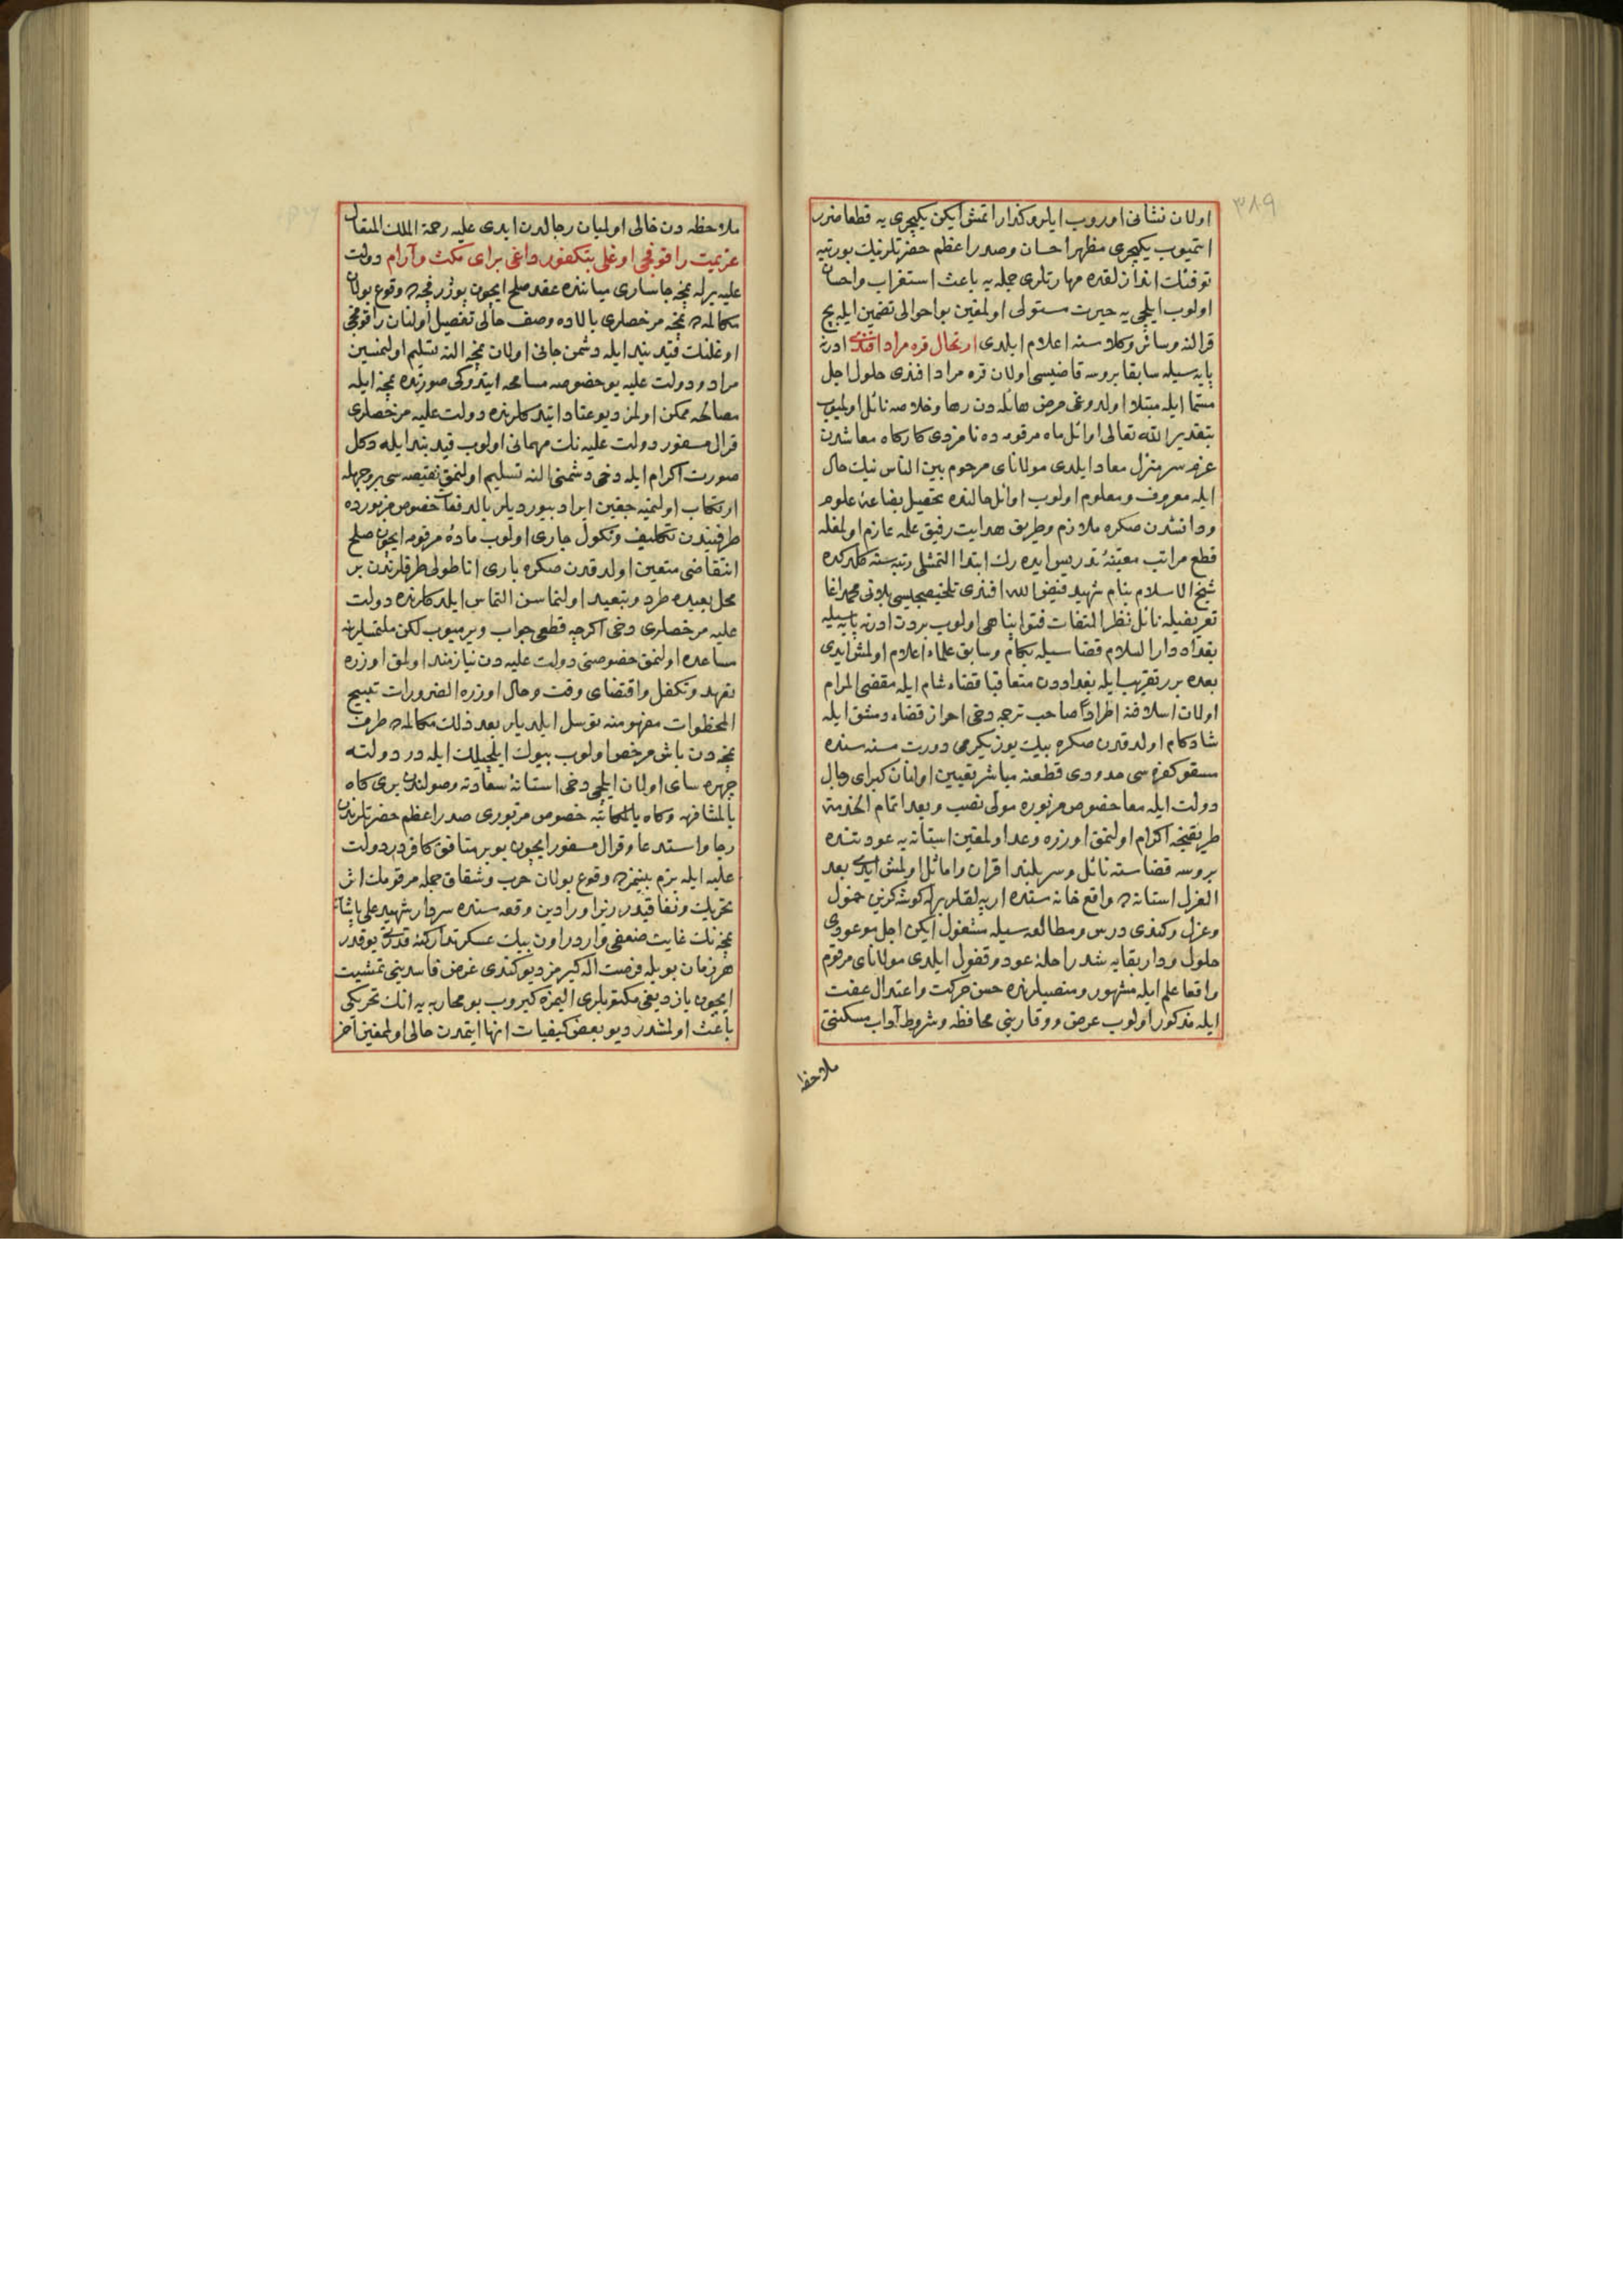 ٣٨٩
اولان نشانی اوروب ایلرو کذار اتمش ایکن یکیچری یه قطعا ضرر
اتمیوب یکیچری مظهر احسان وصدر اعظم حضرتلرینک بو رتبه
توفنک اندازلقده مهارتلری جمله یه باعث استغراب واحسان
اولوب ایلچی یه حیرت مستولی اولمغین بو احوالی تضمین ایله بچ
قرالنه وسائر وکلاسنه اعلام ایلدی ارتحال قره مراد افندی ادرنه
پایه سیله سابقا بروسه قاضیسی اولان قره مراد افندی حلول اجل
مسما ایله مبتلا اولدوغی مرض هائله دن رها وخلاصه نائل اولمیوب
بتقدیر الله تعالی اوائل ماه مرقومده نامزدی کارکاه معاشدن
عزم سر منزل معاد ایلدی مولانای مرحوم بین الناس نیک حال
ایله معروف ومعلوم اولوب اوائل حالنده تحصیل بضاعۀ علوم
ودانشدن صکره ملازم وطریق هدایت رفیق علمه عازم اولمغله
قطع مراتب معینۀ تدریس ایده رک ابتدا التمشلی رتبه سنه کلدکده
شیخ الاسلام بنام شهید فیض الله افندی تلخیصجیسی محمد اغا
تعریفیله نائل نظر التفات فتوا پناهی اولوب بردن ادرنه پایه سیله
بغداد دار السلام قضاسیله بکام وسابق علماء اعلام اولمش ایدی
بعده بر تقریب ایله بغداددن متعاقبا قضاء شام ایله مقضی المرام
اولان اسلافنه اطرادا صاحب ترجمه دخی احراز قضاء دمشق ایله
شادکام اولدقدن صکره بیک یوز یکرمی دورت سنه سنده
مسقو کفره سی حدودی قطعنه مباشر تعیین اولنان کبرای رجال
دولت ایله معا خصوص مزبوره مولی نصب وبعد اتمام الخدمة
طریقنجه اکرام اولنمق اوزره وعد اولمغین استانه یه عودتنده
بروسه قضاسنه نائل وسربلند اقران واماثل اولمش ایدی بعد
العزل استانه ده واقع خانه سنده ارپه لقلر برله کوشه کزین خمول
وعزل وکندی درس ومطالعه سیله مشغول ایکن اجل موعودی
حلول ودار بقایه شد راحلۀ عود وقفول ایلدی مولانای مرقوم
واقعا علم ایله مشهور ومنصبلرنده حسن حرکت واعتدال عفت
ایله مذکور اولوب عرض ووقارینی محافظه وشروط آداب مسکنتی
ملاحظه
ملاحظه دن خالی اولمیان رجالدن ایدی علیه رحمة الملک المتعال
عزیمت راقوفجی اوغلی بتکفور داغی برای مکث وآرام دولت
علیه برله نمچه جاساری میاننده عقد صلح ایچون پوژرفچه ده وقوع بولان
مکالمه ده نمچه مرخصلری بالاده وصف حالی تفصیل اولنان راقوفجی
اوغلنک قید بند ایله دشمن جانی اولان نمچه النه تسلیم اولنمسین
مراد ودولت علیه بو خصوصه مسامحه ایتدوکی صورتده نمچه ایله
مصالحه ممکن اولمز دیو عناد ایتدکلرنده دولت علیه مرخصلری
قرال مسفور دولت علیه نک مهمانی اولوب قید بند ایله دکل
صورت اکرام ایله دخی دشمنی النه تسلیم اولنمق نقیصه سی بر وجهله
ارتکاب اولنمیه جغین ایراد بیوردیلر بالدفعات خصوص مزبورده
طرفیندن تکلیف ونکول جاری اولوب مادۀ مرقومه ایچون صلح
انتقاضی متعین اولدقدن صکره باری اناطولی طرفلرندن بر
محل بعیده طرد وتبعید اولنماسن التماس ایلدکلرنده دولت
علیه مرخصلری دخی اکرچه قطعی جواب ویرمیوب لکن ملتمسلرینه
مساعده اولنمق خصوصنی دولت علیه دن نیازمند اولمق اوزره
تعهد وتکفل واقتضای وقت وحال اوزره الضرورات تبیح
المحظورات مفهومنه توسل ایلدیلر بعد ذلک مکالمه ده طرف
نمچه دن باش مرخص اولوب بیوک ایلچیلک ایله در دولته
چهره سای اولان ایلچی دخی استانۀ سعادته وصولندن بری کاه
بالمشافهه وکاه بالمکاتبه خصوص مزبوری صدر اعظم حضرتلرندن
رجا واستدعا وقرال مسفور ایچون بو بر منافق کافردر دولت
علیه ایله بزم بینمزده وقوع بولان حرب وشقاق جمله مرقومک اثر
تحریک ونفاقیدر زیرا ورادین وقعه سنده سردار شهید علی پاشایه
نمچه نک غایت ضعفی واردر اون بیک عسکر تدارکنه قدرتی یوقدر
هر زمان بویله فرصت اله کیرمز دیو کندی غرض فاسدینی تمشیت
ایچون یازدیغی مکتوبلری الیمزه کیروب بو محاربه یه انک تحریکی
باعث اولمشدر دیو بعض کیفیات انها ایتمدن خالی اولمغین آخر